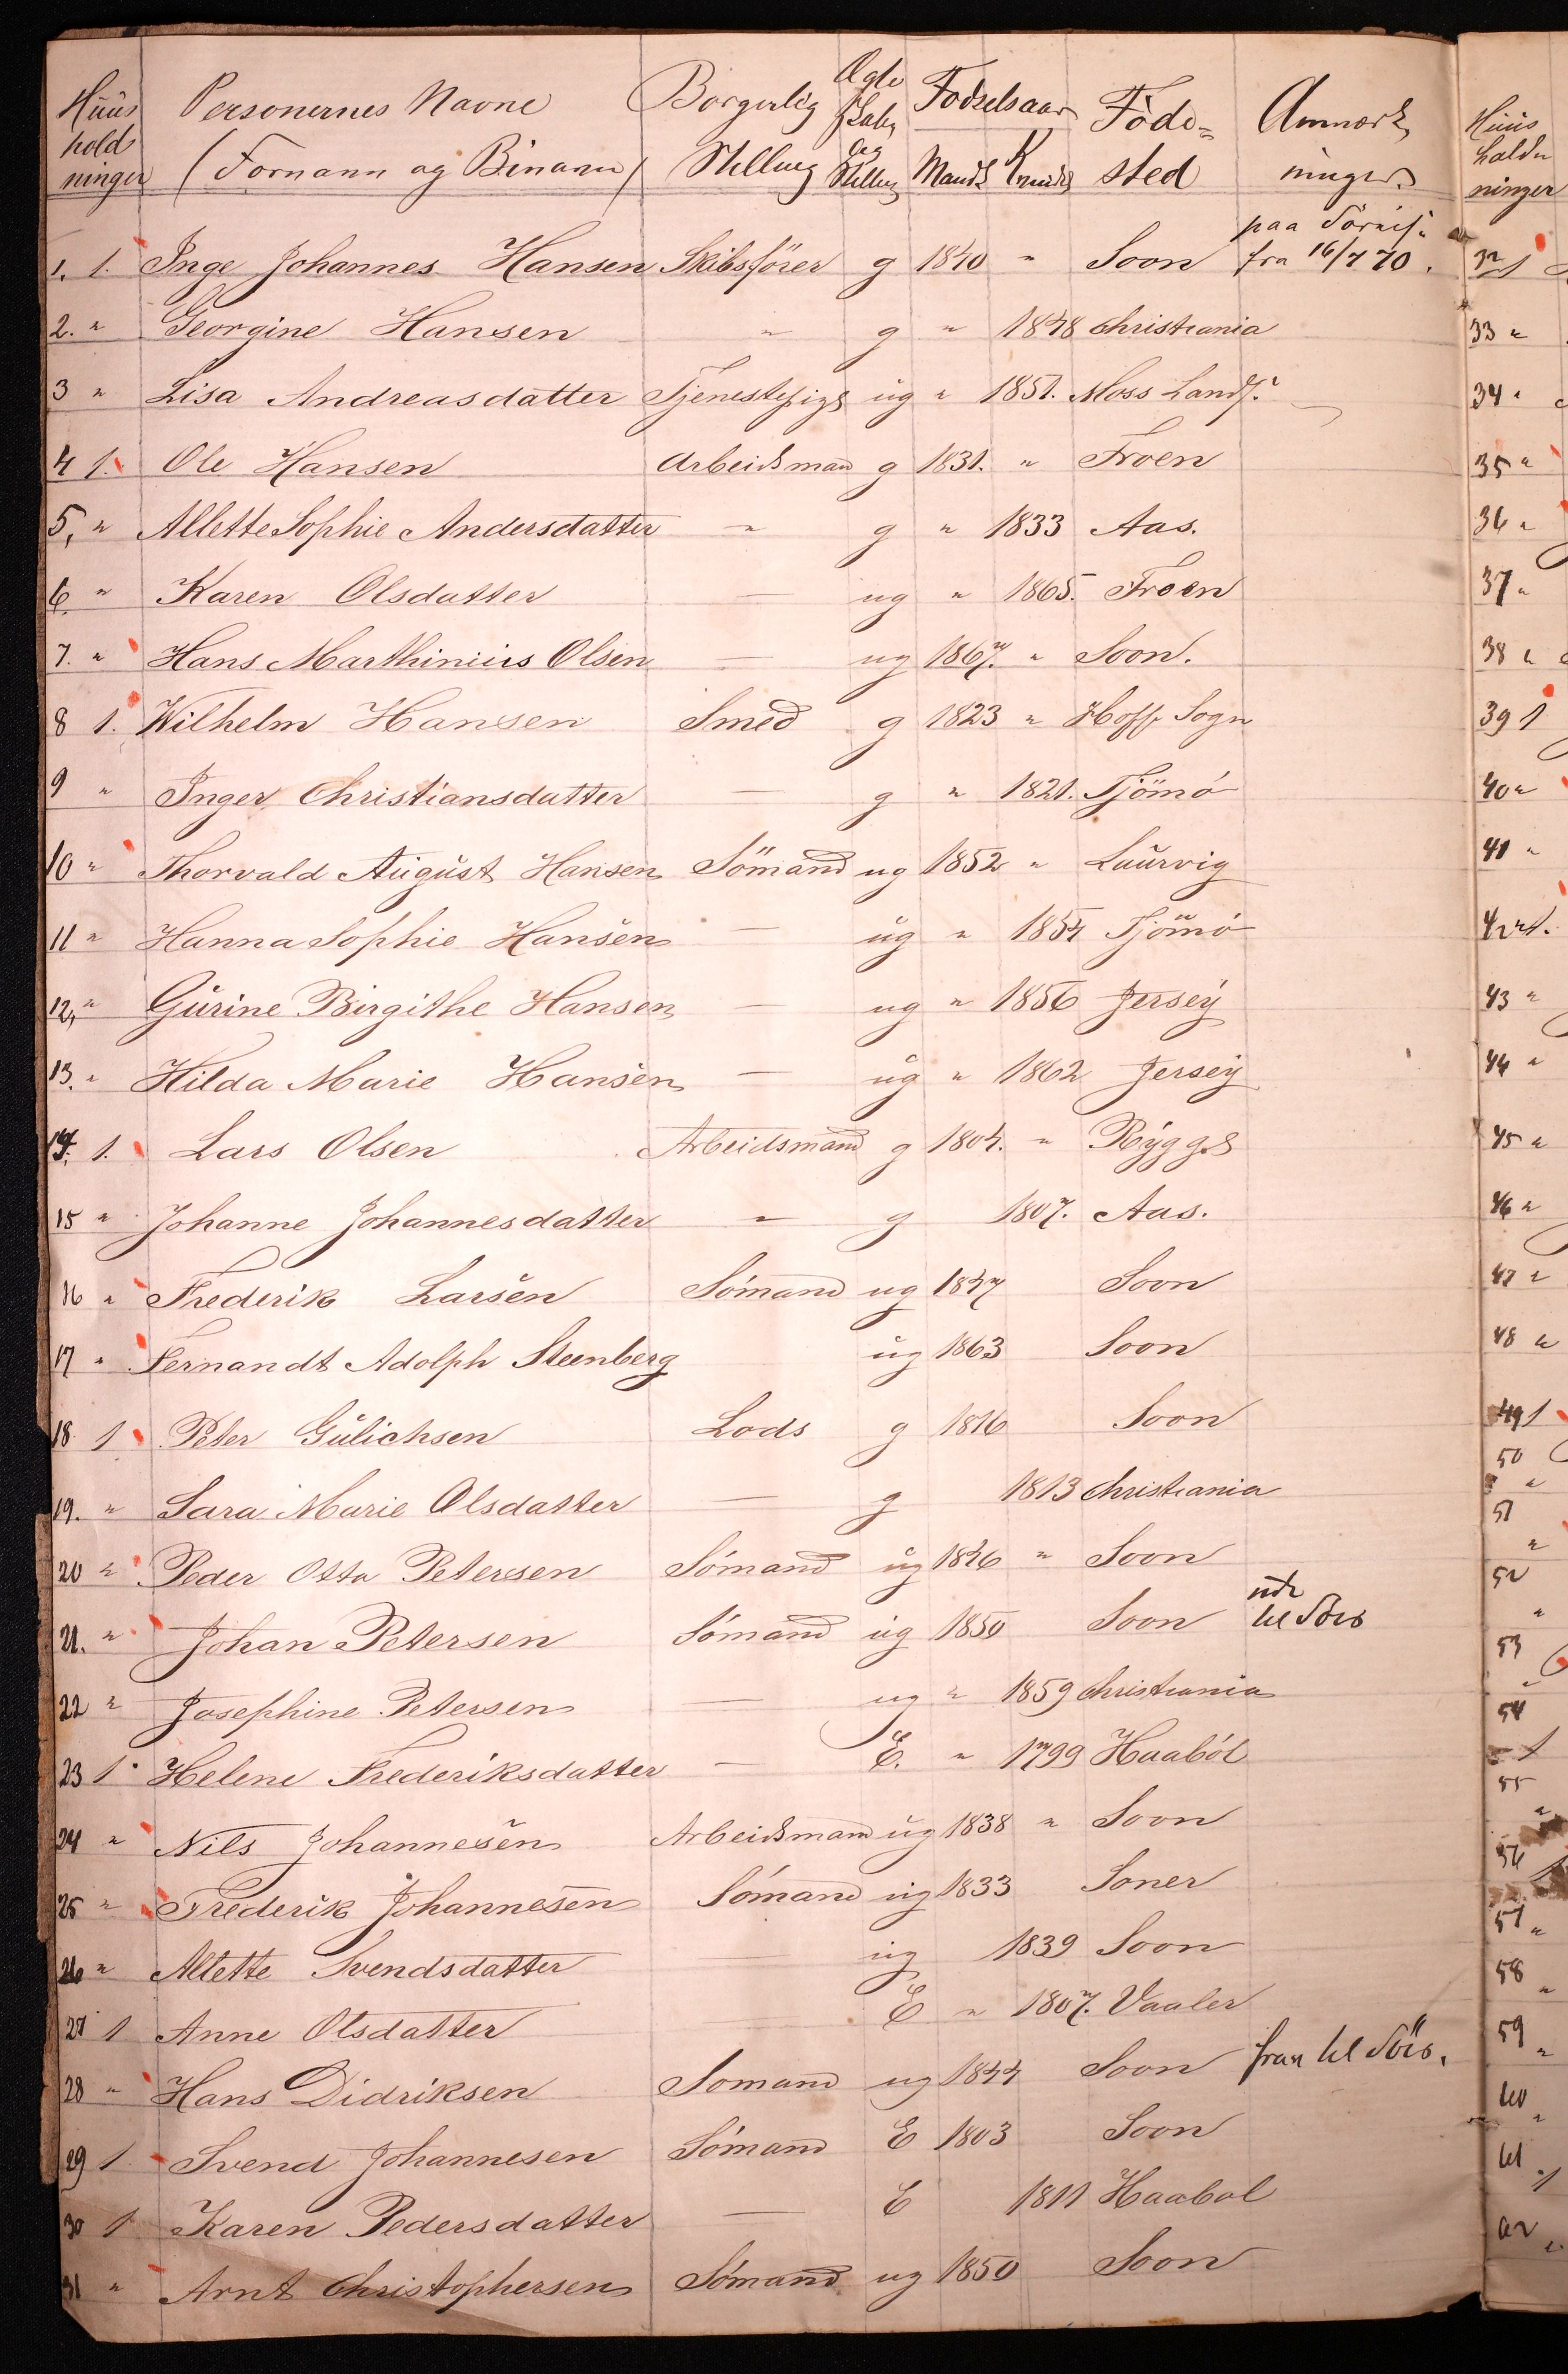 Huus Personernes Navne Borgerlig Ægte Fødselsaar Føde= Anmærk
hold (Fornavn og Binavn) Stilling Stilling Mandk Kvindk sted ninger
ninger
paa
1. 1. Inge Johannes Hansen Skibsfører g 1840 " Soon fra 16/7 70.
2. " Georgine Hansen " g " 1848 Christiania
3 " Lisa Andreasdatter Tjenestepige ug " 1851. Moss Lands.
4 1. Ole Hansen Arbeidsmand g 1831. " Froen
5, " Allette Sophie Andersdatter " g " 1833 Aas.
6 " Karen Olsdatter — ug " 1865. Froen
7. " Hans Marthinius Olsen — ug 1867. " Soon.
8 1. Wilhelm Hansen Smed g 1823 " Hoff Sogn
9 " Inger Christiansdatter — g " 1821. Tjömö
10 " Thorvald August Hansen Sömand ug 1852 " Laurvig
11 " Hanna Sophie Hansen — ug " 1854 Tjömö
12, " Gurine Birgithe Hansen — ug " 1856 Jersey
13. " Hilda Marie Hansen — ug " 1862 Jersey
14. 1. Lars Olsen Arbeidsmand g 1804. " Rygge
15 " Johanne Johannesdatter " g 1807. Aas.
16 " Frederik Larsen Sömand ug 1847 Soon
17 " Fernandt Adolph Steenberg ug 1863 Soon
18 1 Peter Gulichsen Lods g 1816 Soon
19. " Sara Marie Olsdatter — g 1813 Christiania
20 " Peder Otto Petersen Sömand ug 1846 " Soon
21. " Johan Petersen Sömand ug 1850 Soon til Søes
22 " Josephine Petersen — ug " 1859 Christiania
23 1 Helene Frederiksdatter — E. " 1799 Haaböl
24 " Nils Johannesen Arbeidsmand ug 1838 " Soon
25 " Frederik Johannesen Sömand ug 1833 Soner
26 " Allette Svendsdatter — ug 1839 Soon
27 1 Anne Olsdatter — E " 1807. Vaaler
28 " Hans Didriksen Somand ug 1844 Soon fran til Söes.
29 1 Svend Johannesen Sömand E 1803 Soon
30 1 Karen Pedersdatter — E 1811 Haabol
31 " Arnt Christophersen Sömand ug 1850 Soon
Huus
holdn
ninger
32 1
33 "
34 "
35 "
36 "
37 "
38 "
39 1
40 "
41 "
42 1.
43 "
44 "
45 "
46 "
47 "
48 "
49 1
50 "
51 "
52 "
53 "
54 1
55 "
56
57 "
58 "
59 "
60 "
61 1
62 "